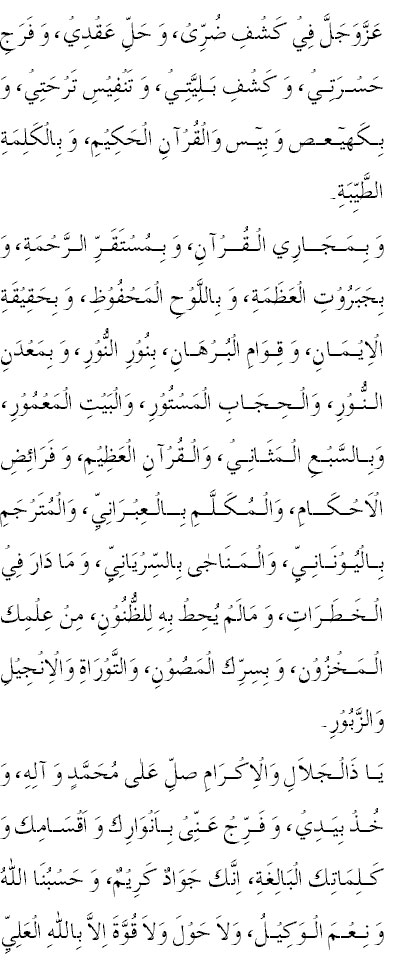 عَزَّوَجَلَّ فِيْ كَشْفِ ضُرِّيْ، وَ حَلِّ عَقْدِيْ، وَ فَرَجِ
حَسْرَتِيْ، وَ كَشْفِ بَلِيَّتِيْ، وَ تَنْفِيْسِ تَرْحَتِيْ، وَ
بِكَهيٰعص وَ بِيٰس وَالْقُرْآنِ الْحَكِيْمِ، وَ بِالْكَلِمَةِ
الطَّيِّبَةِ۔
وَ بِمَجَارِي الْقُرْآنِ، وَ بِمُسْتَقَرِّ الرَّحْمَةِ، وَ
بِجَبَرُوْتِ الْعَظَمَةِ، وَ بِاللَّوْحِ الْمَحْفُوْظِ، وَ بِحَقِيْقَةِ
الْاِيْمَانِ، وَ قِوَامِ الْبُرْهَانِ، بِنُوْرِ النُّوْرِ، وَ بِمَعْدَنِ
النُّوْرِ، وَالْحِجَابِ الْمَسْتُوْرِ، وَالْبَيْتِ الْمَعْمُوْرِ،
وَبِالسَّبْعِ الْمَثَانِيْ، وَالْقُرْآنِ الْعَظِيْمِ، وَ فَرَائِضِ
الْاَحْكَامِ، وَالْمُكَلَّمِ بِالْعِبْرَانِيِّ، وَالْمُتَرْجَمِ
بِالْيُوْنَانِيِّ، وَالْمَنَاجٰى بِالسِّرْيَانِيِّ، وَ مَا دَارَ فِيْ
الْخَطَرَاتِ، وَ مَالَمْ يُحِطْ بِهِ لِلظُّنُوْنِ، مِنْ عِلْمِكَ
الْمَخْزُوْنِ، وَ بِسِرِّكَ الْمَصُوْنِ، وَالتَّوْرَاةِ وَالْاِنْجِيْلِ
وَالزَّبُوْرِ۔
يَا ذَالْجَلاَلِ وَالْاِكْرَامِ صلِّ عَلٰى مُحَمَّدٍ وَ آلِهِ، وَ
خُذْ بِيَدِيْ، وَ فَرِّجْ عَنِّيْ بِاَنْوَارِكَ وَ اَقْسَامِكَ وَ
كَلِمَاتِكَ الْبَالِغَةِ، اِنَّكَ جَوَادٌ كَرِيْمٌ، وَ حَسْبُنَا اللّٰهُ
وَ نِعْمَ الْوَكِيْلُ، وَلاَ حَوْلَ وَلاَ قُوَّةَ اِلاَّ بِاللّٰهِ الْعَلِيِّ